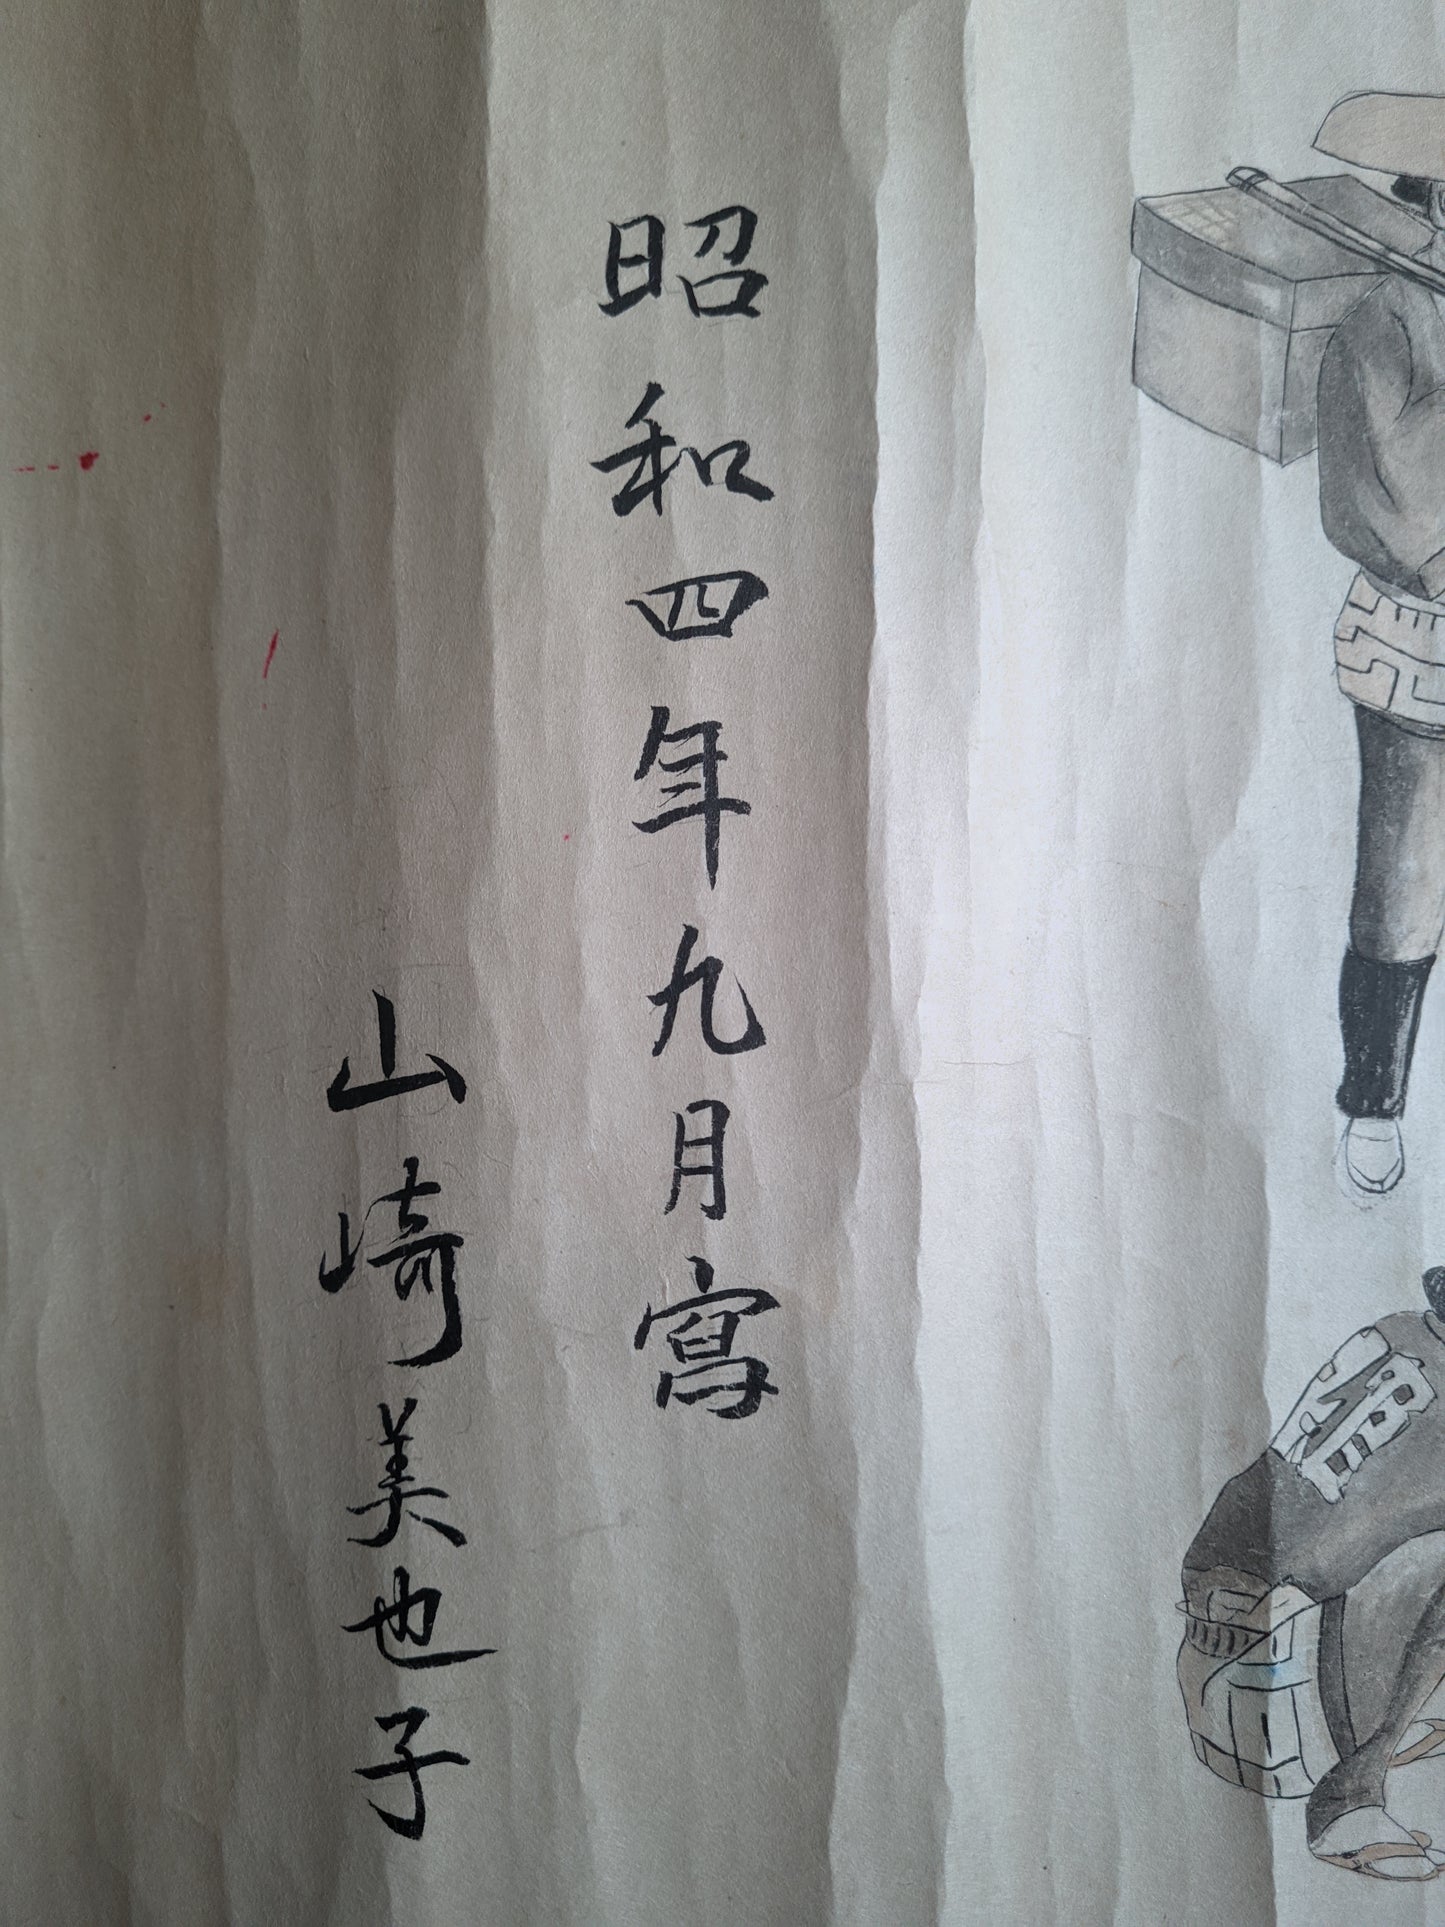 昭和四年九月寫
山崎美也子